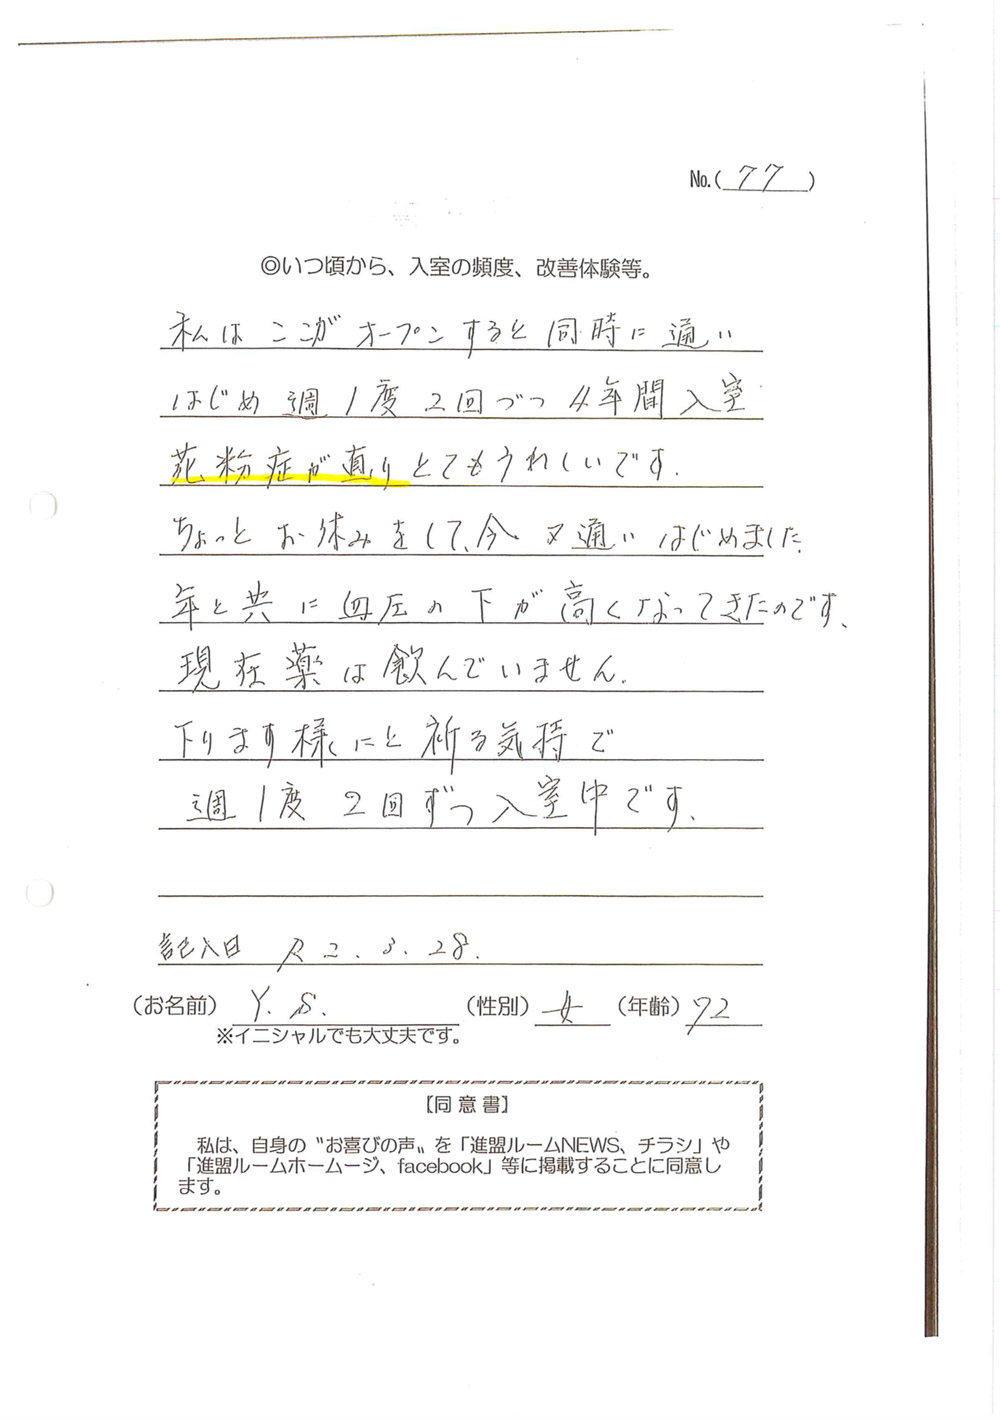 No.(77)
◎いつ頃から、入室の頻度、改善体験等。
私はここがオープンすると同時に通い
はじめ週1度2回づつ4年間入室
花粉症が直りとてもうれしいです.
ちょっとお休みをして、今又通いはじめました.
年と共に血圧の下が高くなってきたのです、
現在薬は飲んでいません.
下ります様にと祈る気持で
週1度2回ずつ入室中です.
記入日 R2.3.28.
（お名前）Y.S.（性別）女（年齢）72
※イニシャルでも大丈夫です。
【同意書】
私は、自身の〝お喜びの声〟を「進盟ルームNEWS、チラシ」や
「進盟ルームホームージ、facebook」等に掲載することに同意し
ます。